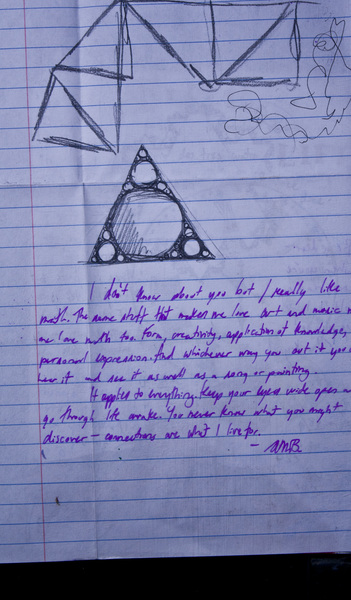 I don't know about you but I really like
math. The same stuff that makes me love art and music m
me love math too. Form, creativity, application of knowledge,
personal expression. And whichever way you cut it you
hear it and see it as well as a song or painting.
It applies to everything. Keep your eyes wide open a
go through life awake. You never know what you might
discover — connections are what I live for.